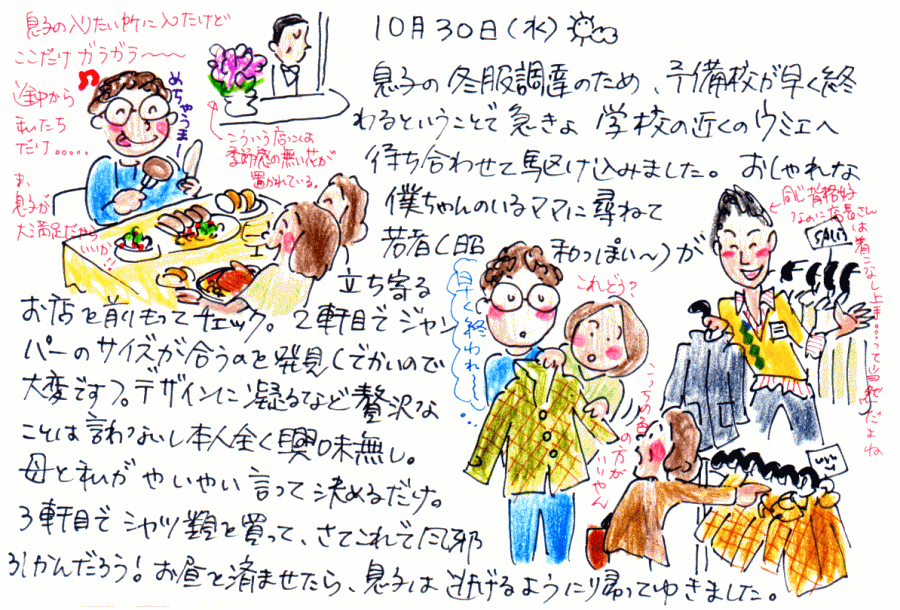 10月30日(水)
息子の冬服調達のため、予備校が早く終
わるということで急きょ 学校の近くのウミエへ
待ち合わせて駆け込みました。おしゃれな
僕ちゃんのいるママに尋ねて
若者(昭和っぽい〜)が
立ち寄る
お店を前もってチェック。2軒目でジャン
パーのサイズが合うのを発見(でかいので
大変です)。デザインに凝るなど贅沢な
ことは言わないし本人全く興味無し。
母と私がやいやい言って決めるだけ。
3軒目でシャツ類を買って、さてこれで風邪
引かんだろう!お昼を済ませたら、息子は逃げるように帰ってゆきました。
息子の入りたい所に入ったけど
ここだけガラガラ〜〜〜
途中から
私たち
だけ.....
ま、
息子が
大満足だから
いいか!!
めちゃうまー
こういう店には
季節感の無い花が
置かれている。
同じ背格好
なのに店長さん
は着こなし上手...って当然だよね
SALE
これどう?
早く終われ〜
こっちの色の方が
いいやん